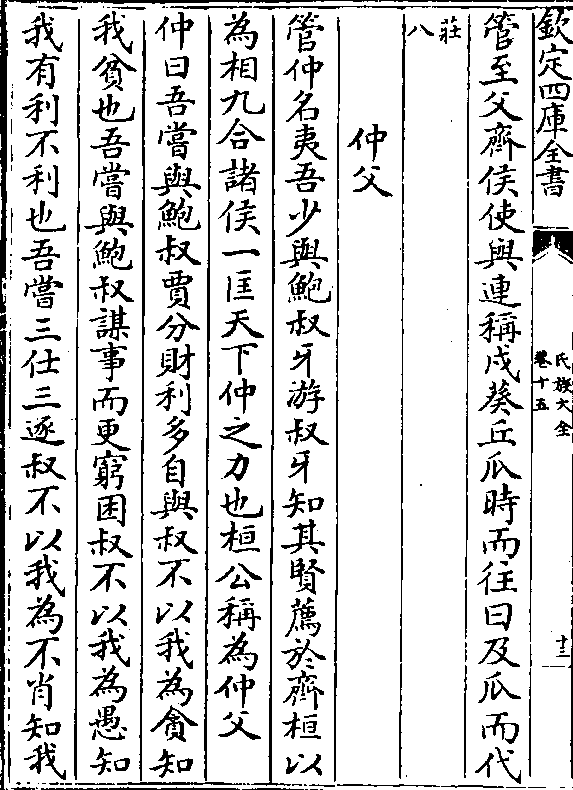 欽定四庫全書
氏族大全
卷十五
十三
管至父齊侯使與連稱戍葵丘瓜時而往曰及瓜而代
莊
八
仲父
管仲名夷吾少與鮑叔牙游叔牙知其賢薦於齊桓以
為相九合諸侯一匡天下仲之力也桓公稱為仲父
仲曰吾嘗與鮑叔賈分財利多自與叔不以我為貪知
我貧也吾嘗與鮑叔謀事而更窮困叔不以我為愚知
我有利不利也吾嘗三仕三逐叔不以我為不肖知我